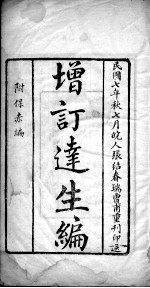 民國七年秋七月皖人張紹春瑞賈甫重刊印送
增訂達生編
附保赤編